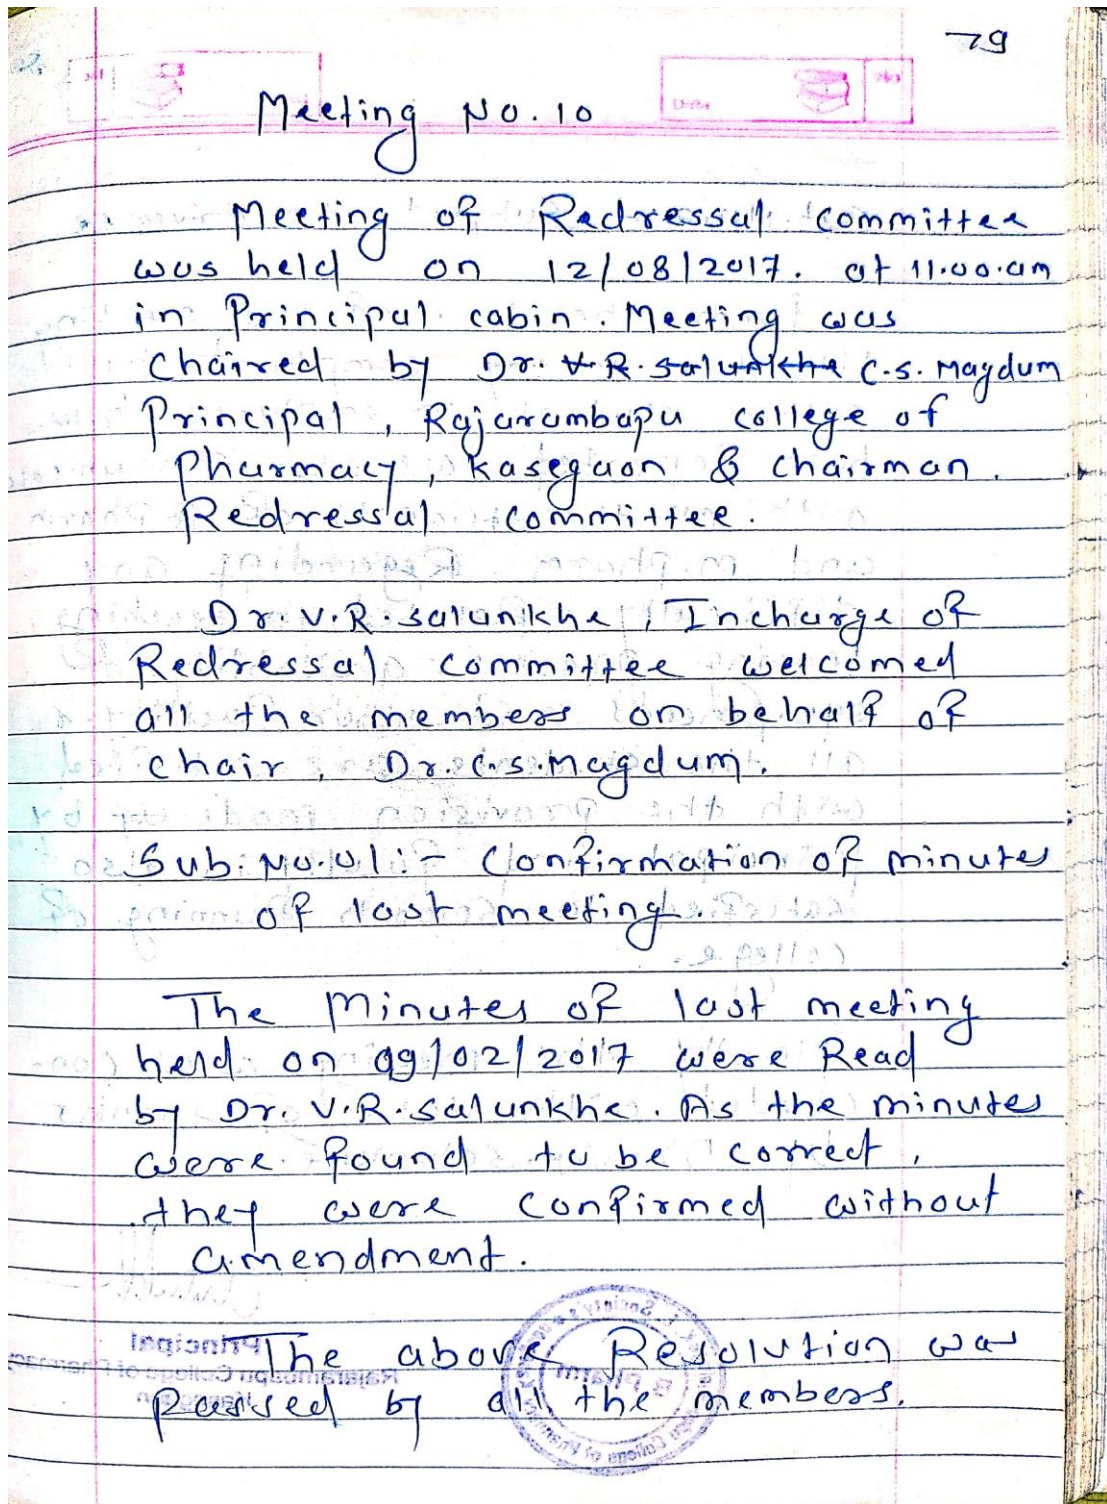 79
Meeting No. 10
Meeting of Redressal committee
was held on 12/08/2017. at 11.00.am
in Principal cabin. Meeting was
Chaired by Dr. V.R. Salunkhe C.S. Magdum
Principal, Rajarambapu college of
Pharmacy, Kasegaon & Chairman.
Redressal committee.
Dr. V.R. Salunkhe, Incharge of
Redressal committee welcomed
all the members on behalf of
chair, Dr. C.S. Magdum.
Sub. No. 01:- Confirmation of minutes
of last meeting.
The Minutes of last meeting
held on 09/02/2017 were Read
by Dr. V.R. Salunkhe. As the minutes
were found to be correct,
they were confirmed without
amendment.
The above Resolution was
passed by all the members.
Principal
Rajarambapu College of Pharmacy